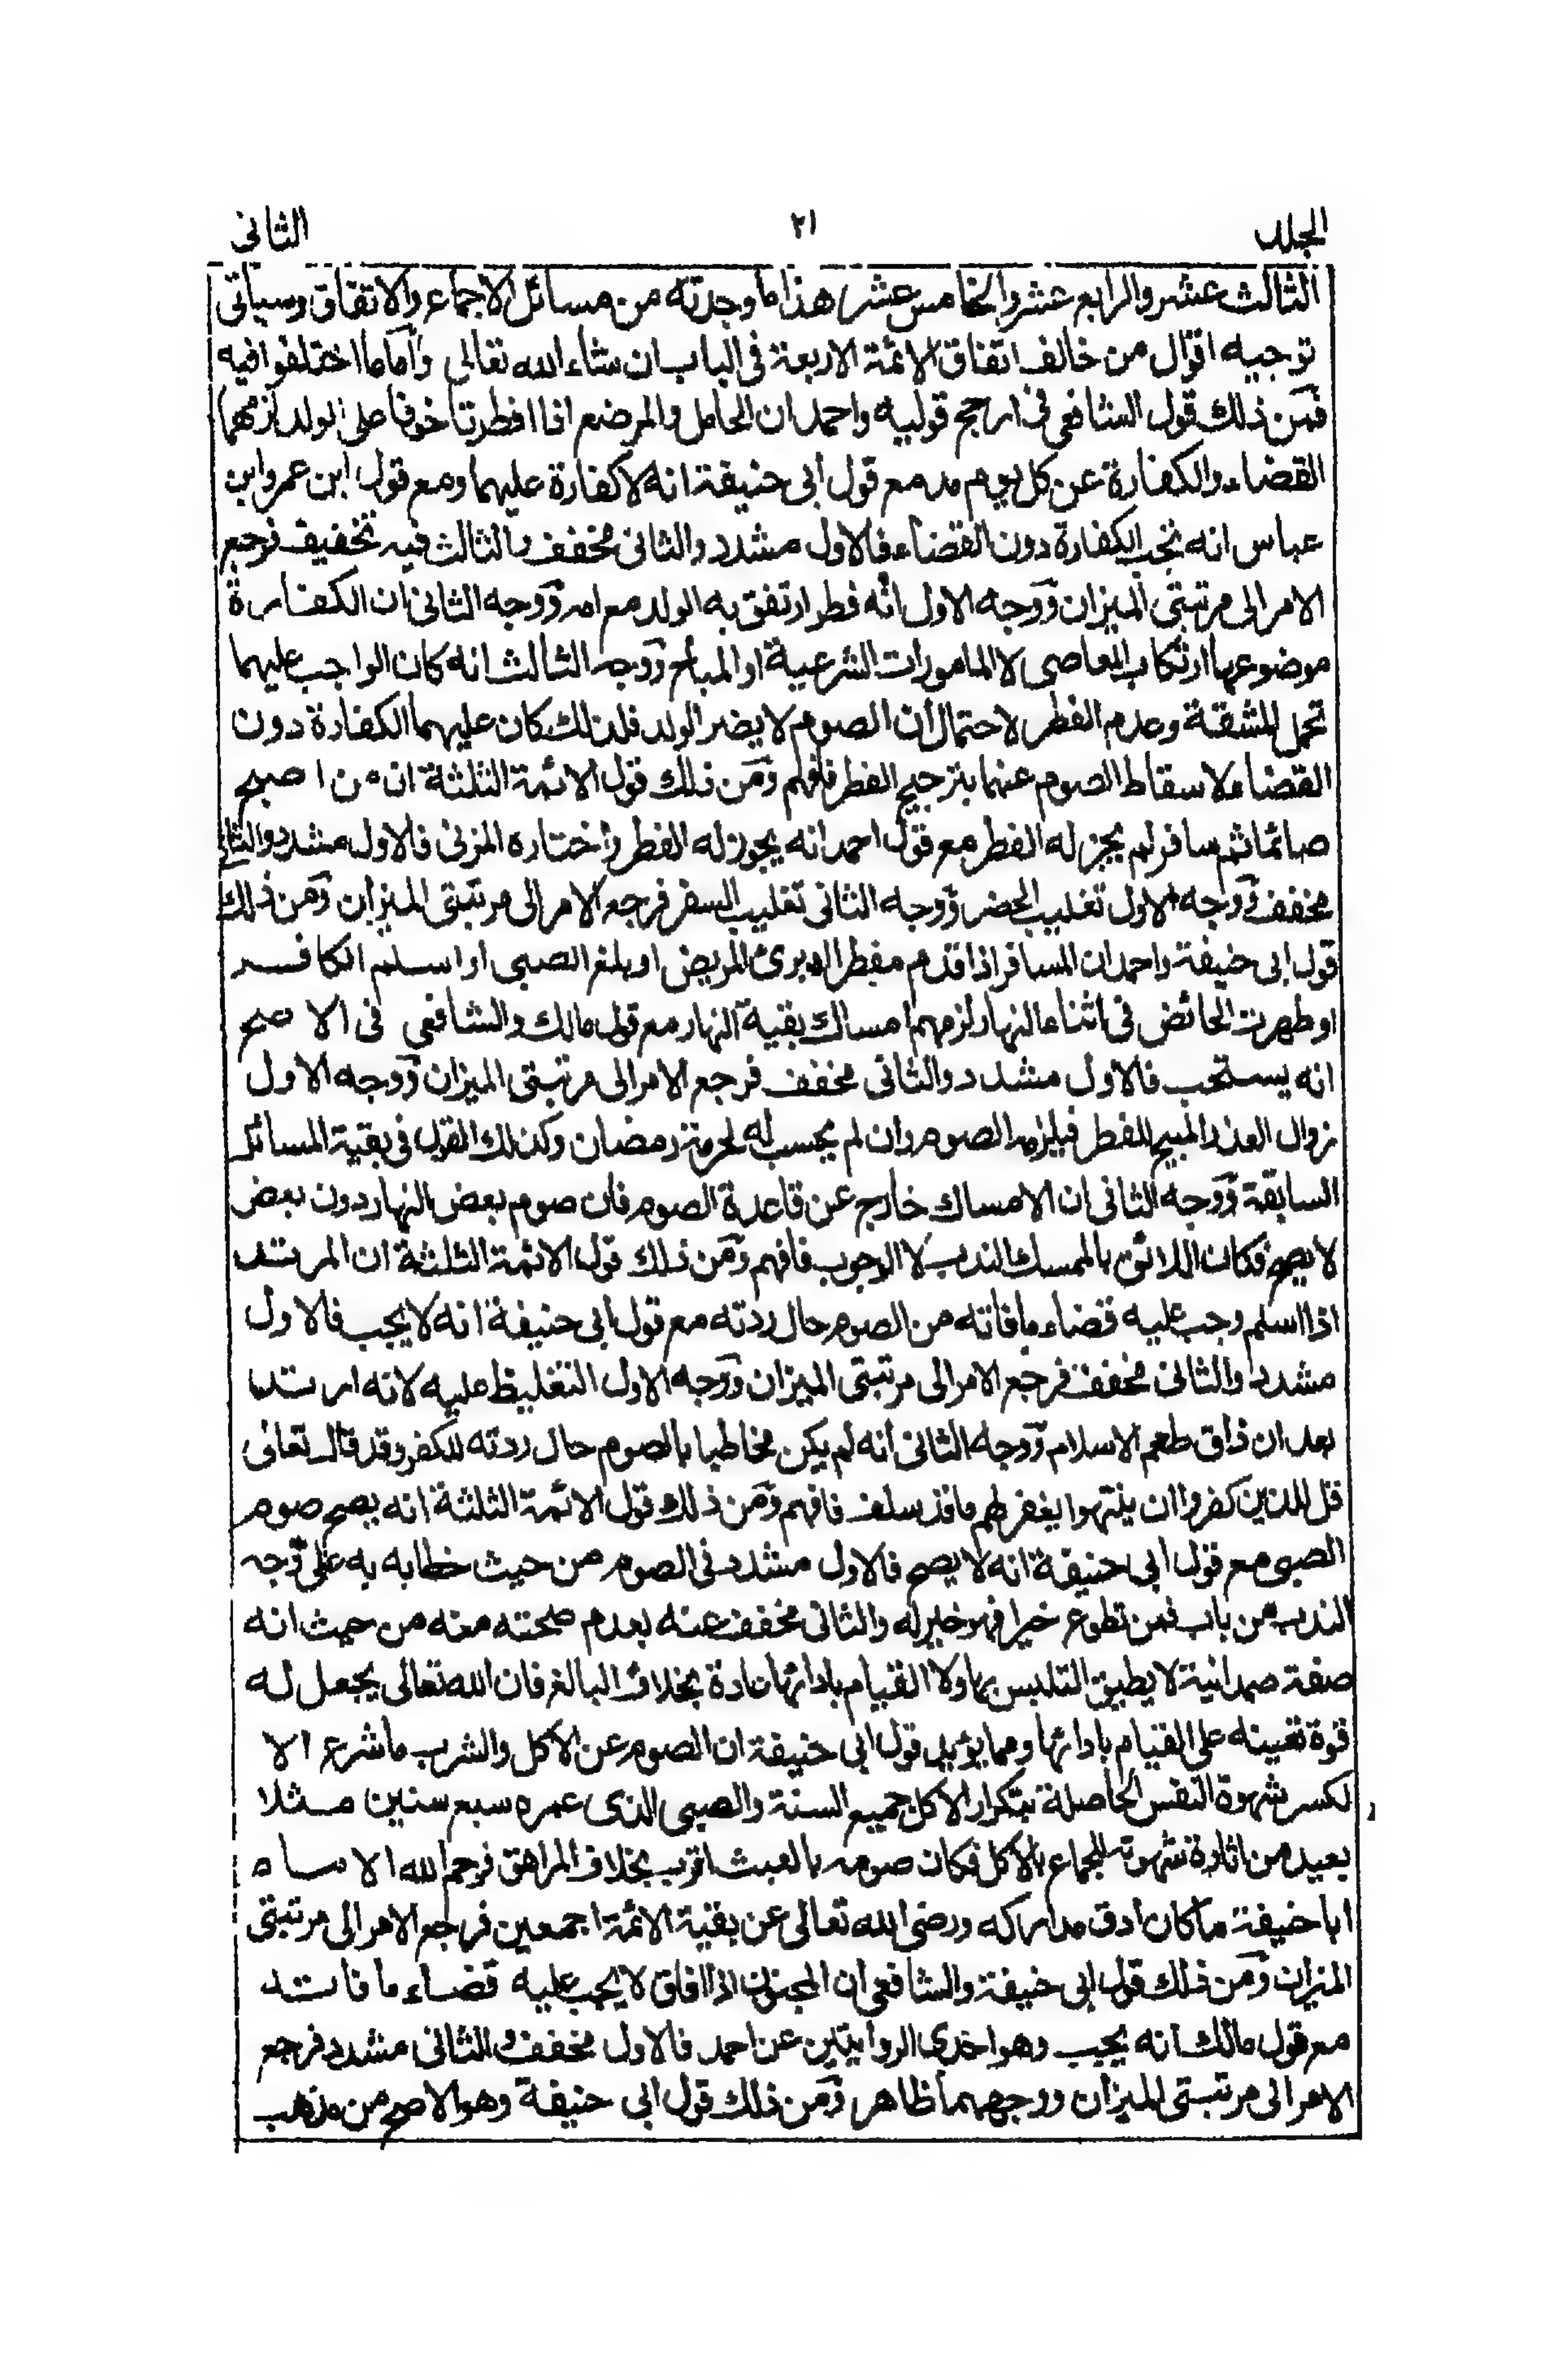 الجلد ٢١ الثانى
الثالث عشر والرابع عشر والخامس عشر هذا ما وجدته من مسائل الاجماع والاتفاق وسياتى
توجيه اقوال من خالف اتفاق الائمة الاربعة فى الباب ان شاء الله تعالى وأما ما اختلفوا فيه
فمن ذلك قول الشافعى فى ارجح قوليه واحمد ان الحامل والمرضع اذا افطرتا خوفا على الولد لزمهما
القضاء والكفارة عن كل يوم مد مع قول أبى حنيفة انه لا كفارة عليهما ومع قول ابن عمر وابن
عباس انه تجب الكفارة دون القضاء فالاول مشدد والثانى مخفف والثالث فيه تخفيف فرجع
الامر الى مرتبتى الميزان ووجه الاول انه فطر ارتفق به الولد مع امه ووجه الثانى ان الكفارة
موضوعها ارتكاب المعاصى لا المامورات الشرعية او المباح ووجه الثالث انه كان الواجب عليهما
تحمل المشقة وعدم الفطر لاحتمال أن الصوم لا يضر الولد فلذلك كان عليهما الكفارة دون
القضاء لاسقاط الصوم عنهما بترجيح الفطر فافهم ومن ذلك قول الائمة الثلثة ان من اصبح
صائما ثم سافر لم يجز له الفطر مع قول احمد انه يجوز له الفطر واختاره المزنى فالاول مشدد والثانى
مخفف ووجه الاول تغليب الحضر ووجه الثانى تغليب السفر فرجع الامر الى مرتبتى الميزان ومن ذلك
قول ابى حنيفة واحمد ان المسافر اذا قدم مفطرا او برئ المريض او بلغ الصبى او اسلم الكافر
او طهرت الحائض فى اثناء النهار لزمهم امساك بقية النهار مع قول مالك والشافعى فى الاصح
انه يستحب فالاول مشدد والثانى مخفف فرجع الامر الى مرتبتى الميزان ووجه الاول
زوال العذر المبيح للفطر فيلزمه الصوم وان لم يحسب له لحرمة رمضان وكذلك القول فى بقية المسائل
السابقة ووجه الثانى ان الامساك خارج عن قاعدة الصوم فان صوم بعض النهار دون بعض
لا يصح فكان اللائق بالممسك الندب لا الوجوب فافهم ومن ذلك قول الائمة الثلثة ان المرتد
اذا اسلم وجب عليه قضاء ما فاته من الصوم حال ردته مع قول ابى حنيفة انه لا يجب فالاول
مشدد والثانى مخفف فرجع الامر الى مرتبتى الميزان ووجه الاول التغليظ عليه لانه ارتد
بعد ان ذاق طعم الاسلام ووجه الثانى أنه لم يكن مخاطبا بالصوم حال ردته للكفر وقد قال تعالى
قل للذين كفروا ان ينتهوا يغفر لهم ما قد سلف فافهم ومن ذلك قول الائمة الثلثة انه يصح صوم
الصبى مع قول ابى حنيفة انه لا يصح فالاول مشدد فى الصوم من حيث خطابه به على وجه
الندب من باب فمن تطوع خيرا فهو خير له والثانى مخفف عنه بعدم صحته منه من حيث انه
صفة صمدانية لا يطيق التلبس بها ولا القيام بادائها عادة بخلاف البالغ فان الله تعالى يجعل له
قوة تعينه على القيام بادائها ومما يؤيد قول ابى حنيفة ان الصوم عن الاكل والشرب ما شرع الا
لكسر شهوة النفس الحاصلة بتكرار الاكل جميع السنة والصبى الذى عمره سبع سنين مثلا
بعيد من اثارة شهوته للجماع بالاكل فكان صومه بالعبث اقرب بخلاف المراهق فرحم الله الامام
ابا حنيفة ما كان ادق مداركه ورضى الله تعالى عن بقية الائمة اجمعين فرجع الامر الى مرتبتى
الميزان ومن ذلك قول ابى حنيفة والشافعى ان المجنون اذا افاق لا يجب عليه قضاء ما فاته
مع قول مالك انه يجب وهو احدى الروايتين عن احمد فالاول مخفف والثانى مشدد فرجع
الامر الى مرتبتى الميزان ووجههما ظاهر ومن ذلك قول ابى حنيفة وهو الاصح من مذهب